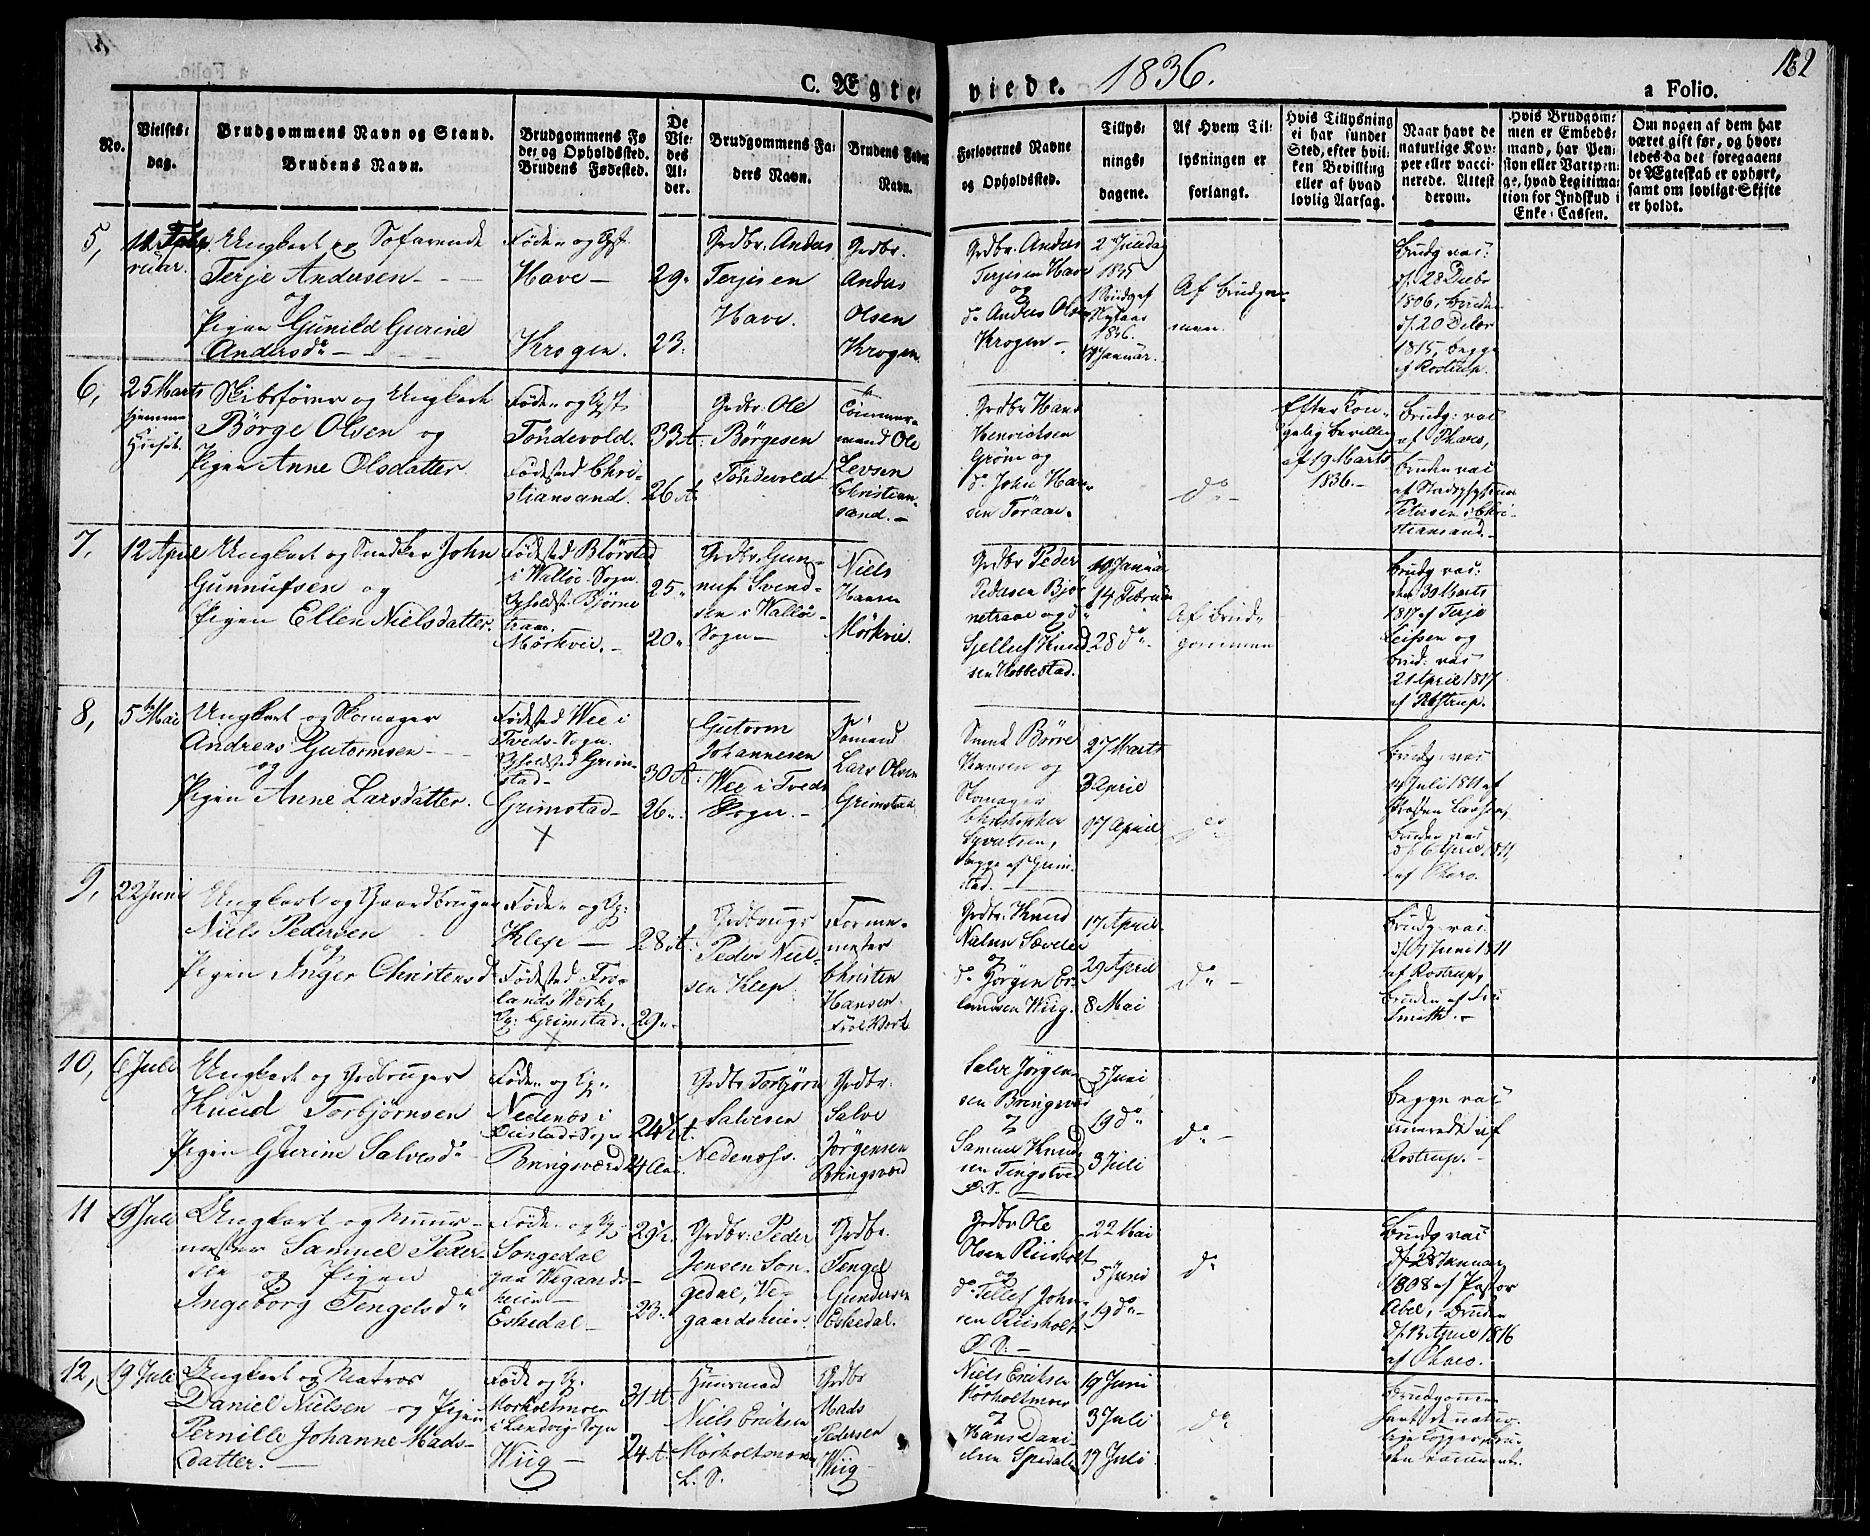 C. Ægte- viede. 1836. a Folio. 162
No.
Vielses-
dag.
Brudgommens Navn og Stand.
Brudens Navn.
Brudgommens Fø
de- og Opholdssted.
Brudens Fødested.
De
Vie-
des
Al-
der.
Brudgommens Fa-
ders Navn.
Brudens Faders
Navn.
Forlovernes Navne
og Opholdssted.
Tillys-
nings-
dagene.
Af Hvem Til-
lysningen er
forlangt.
Hvis Tillysning
ei har fundet
Sted, efter hvil-
ken Bevilling
eller af hvad
lovlig Aarsag.
Naar havt de
naturlige Kop-
per eller vacci-
nerede. Attest
derom.
Hvis Brudgom-
men er Embeds-
mand, har Pen-
sion eller Vartpen-
ge, hvad Legitima-
tion for Indskud i
Enke-Cassen.
Om nogen af dem har
været gift før, og hvor-
ledes da det foregaaen-
de Ægteskab er ophørt,
samt om lovligt Skifte
er holdt.
5,
Ungkarl og Søfarende
Terje Andersen
og
Pigen Gunild Gurine
Andersd.
Føde- og Opst.
Have
Krogen.
29
23.
Grdbr. Anders
Terjesen
Have.
Grdbr.
Anders
Olsen
Krogen
Grdbr. Anders
Terjesen Have
og
do Anders Olsen
Krogen
1835
Nytaar
1836.
Januar.
Af Brudgom-
men.
Brudg. vac:
d. 28 Decbr
1806, Bruden
d. 20 Decbr
1815, begge
af Rostrup.
6,
25 Marts
hjemme
i
Huset.
Skibsfører og Ungkarl
Børge Olsen og
Pigen Anne Olsdatter
Føde- og Opst
Töndevold.
Fødested Chri-
stiansand.
33 A.
26 A.
Grdbr. Ole
Børgesen
Töndevold
Tømmer-
mand Ole
Zevsen
Christian-
sand.
Grdbr Hans
Henrichsen
Grøm og
do John Han-
sen Toraae.
do
Efter Kon-
gelig Bevilling
af 19 Marts
1836.
Brudg. vac
af Tharo,
Bruden vac
af Stadsphysicus
Petersen i Chri-
stiansand.
7,
12 April
Ungkarl og Snedker John
Gunnufsen og
Pigen Ellen Nielsdatter.
Fødested Blørstad
i Walløe Sogn
Opholdst. Bjørne
traae
Mørkvie.
25
20
Grdbr. Gun-
nuf Svend-
sen i Walløe
Sogn
Niels
Hansen
Mörkvie.
Grdbr Peder
Pedersen Bjør-
netraae og do
Gjelluf Knud
sen Kobbestad.
10 Januar
14 Februar
28 do
Af Brud-
gommen
Brudg. vac:
den 30 Marts
1817 af Terje
Leifsen og
Brud: vac
21 April 1817
af Rostrup.
8,
5 Mai
Ungkarl og Skomager
Andreas Gutormsen
og
Pigen Anne Larsdatter.
Fødested Wee i
Tveds-Sogn.
Opholdsted Grim-
stad
Grimstad
X
30 A.
26
Gutorm
Johannesen
Wee i Tveds
Sogn.
Sömand
Lars Olsen
Grimstad
Smed Börre
Hansen og
Skomager
Christopher
Syvertsen,
begge af Grim-
stad.
27 Marts
3 April
17 April
do
Brudg: vac
Juli 1811 af
Larsen,
Bruden vac
d. 6 April 1811
af Tharo.
9,
22 Juni
Ungkarl og Gaardbruger
Niels Pedersen
og
Pigen Inger Christensd
Føde- og Op:
Klep
Fødested Frø-
lands Værk,
Op: Grimstad.
X
28 A.
29
Grdbrugr
Peder Niel-
sen Klep
Forme-
mester
Christen
Hansen
Fröl. Verk
Grdbr. Knud
Nielsen Sævelie
og
do Jörgen Er-
landsen Wiig.
17 April
29 April
8 Mai
do
Brudg. vac
Juni 1811
af Rostrup,
Bruden af Fru
Smith.
10,
6 Juli
Ungkarl og Grdbruger
Knud Torbjørnsen
og
Pigen Gurine Salvesd
Føde- og Op
Nedenæs i
Øiestad-Sogn
Bringsværd
24½ A.
24 A.
Grdbr Torbjörn
Salvesen
Nedenæs.
Grdbr:
Salve
Jörgensen
Bringsværd
Salve Jørgen-
sen Bringsværd
og
Samuel Knud
sen Tingstved
Ø. S.
5 Juni
19 do
3 Juli
do
Begge vac
cinerede af
Rostrup.
11
9 Juli
Ungkarl og Muur-
mester Samuel Peder-
sen og Pigen
Ingeborg Tengelsd
Føde- og Op
Songedal
paa Wegaards-
heien
Eskedal
29½.
23.
Grdbr. Peder
Jensen Son-
gedal, Ve-
gaardsheien.
Grdbr.
Tengel
Gundersen
Eskedal.
Grdbr Ole
Olsen Riisholt
og
do Tellef John-
sen Riisholt
Ø. S.
22 Mai
5 Juni
19 do
do
Brudg vac
d. 28 Januar
1808 af Pastor
Abel, Bruden
d. 13 April 1816
af Tharo.
12,
19 Juli
Ungkarl og Matros
Daniel Nielsen og Pigen
Pernille Johanne Mads-
datter.
Føde og Op.
Morholtmoen
i Landvig-Sogn
Wiig
31 A
24 A.
Huusmand
Niels Eriksen
Mörholtmoen
L. S.
Grdbr
Mads
Pedersen
Wiig
Niels Eriksen
Morholtmoen
og
Hans Dani-
elsen Spedalen
19 Juni
3 Juli
17 Juli
do
Brudgommen
havt de natur-
lige Kopper, Bru-
den vaccineret.